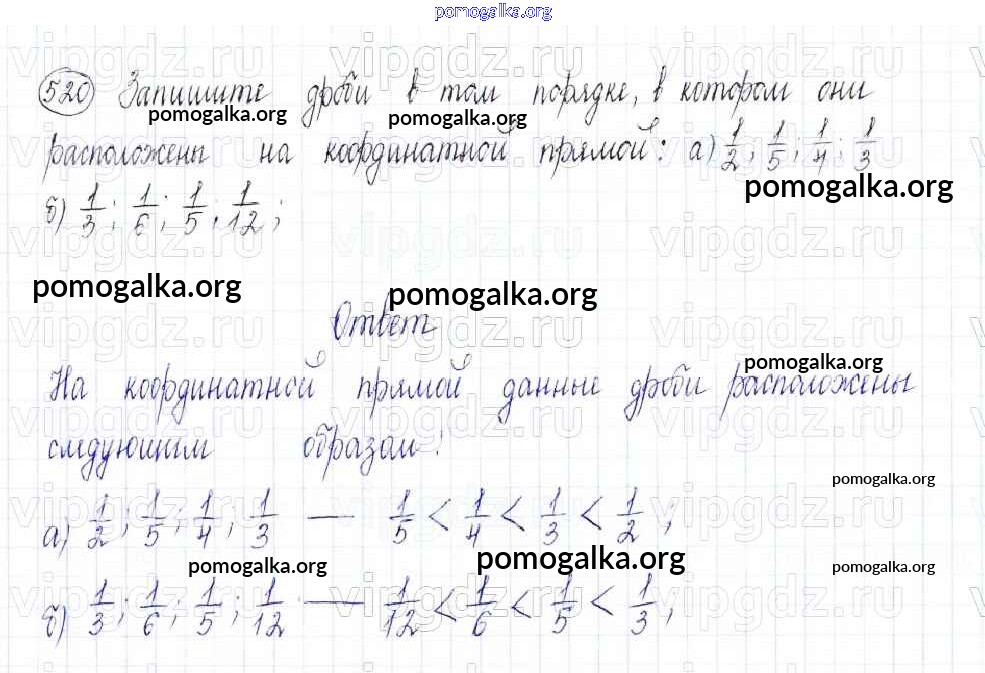 pomogalka.org
520 Запишите дроби в том порядке, в котором они
pomogalka.org pomogalka.org
расположены на координатной прямой: а) 1/2; 1/5; 1/4; 1/3
pomogalka.org
б) 1/3; 1/6; 1/5; 1/12;
vipgdz.ru vipgdz.ru vipgdz.ru
pomogalka.org pomogalka.org
Ответ
pomogalka.org
На координатной прямой данные дроби расположены
следующим образом:
pomogalka.org
а) 1/2; 1/5; 1/4; 1/3 — 1/5 < 1/4 < 1/3 < 1/2;
pomogalka.org pomogalka.org pomogalka.org
б) 1/3; 1/6; 1/5; 1/12 — 1/12 < 1/6 < 1/5 < 1/3;